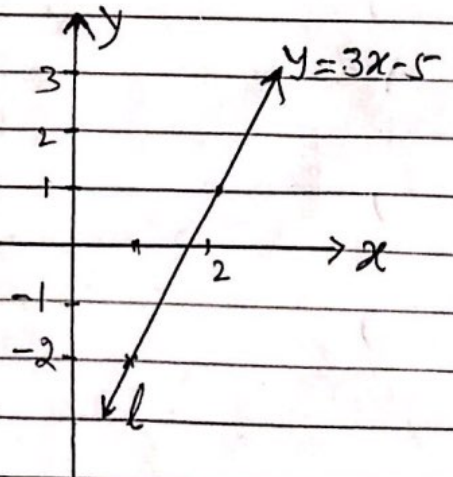 y
y=3x-5
3
2
1
x
2
-1
-2
l